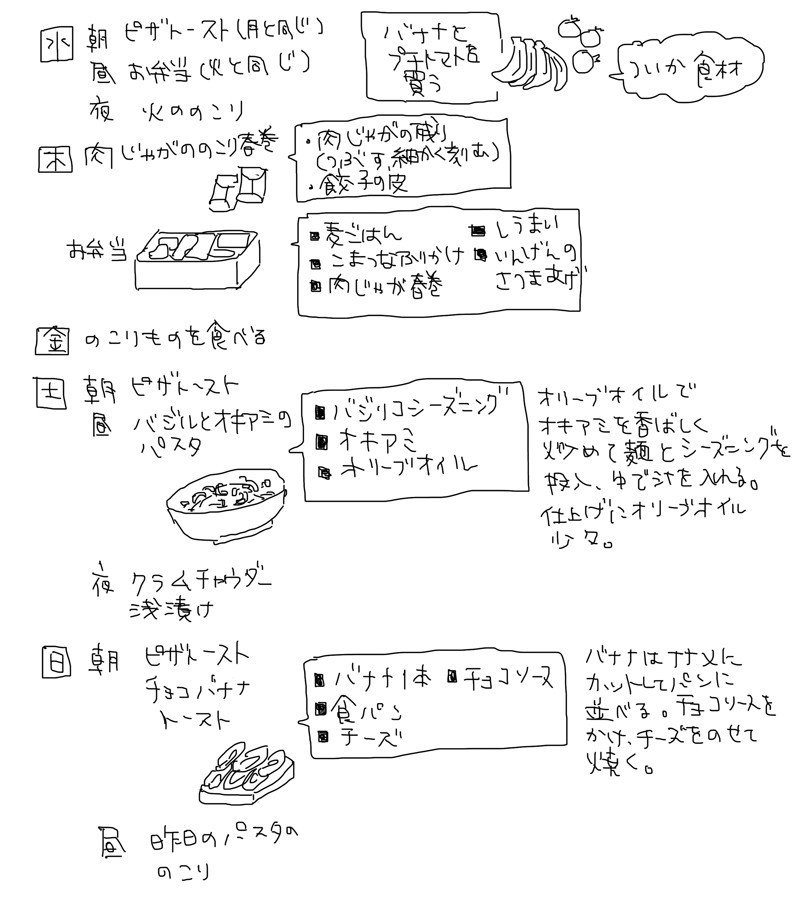 水 朝 ピザトースト(月と同じ)
昼 お弁当(火と同じ)
夜 火ののこり
バナナと
プチトマトを
買う
ついか食材
木 肉じゃがののこり春巻
・肉じゃがの残り
(つぶす、細かく刻む)
・餃子の皮
お弁当
麦ごはん
こまつなふりかけ
肉じゃが春巻
しうまい
いんげんの
さつまあげ
金 のこりものを食べる
土 朝 ピザトースト
昼 バジルとオキアミの
パスタ
バジリコシーズニング
オキアミ
オリーブオイル
オリーブオイルで
オキアミを香ばしく
炒めて麺とシーズニングを
投入、ゆで汁を入れる。
仕上げにオリーブオイル
少々。
夜 クラムチャウダー
浅漬け
日 朝 ピザトースト
チョコバナナ
トースト
バナナ1本
食パン
チーズ
チョコソース
バナナはナナメに
カットしてパンに
並べる。チョコソースを
かけ、チーズをのせて
焼く。
昼 昨日のパスタの
のこり